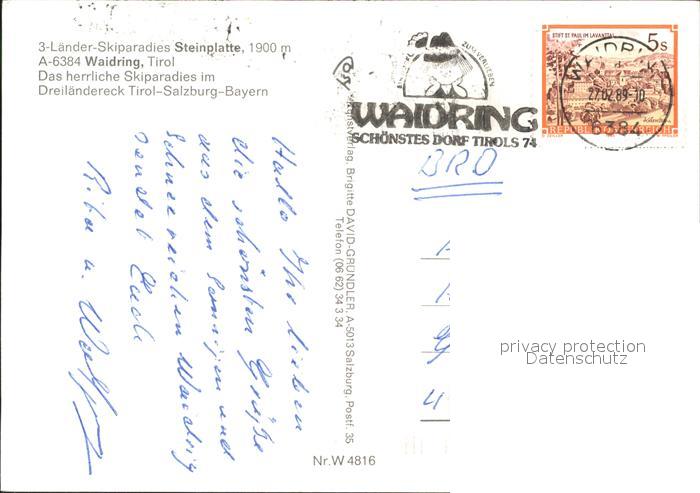 3-Länder-Skiparadies Steinplatte, 1900 m
A-6384 Waidring, Tirol
Das herrliche Skiparadies im
Dreiländereck Tirol–Salzburg–Bayern
ZUM VERLIEBEN
WAIDRING
SCHÖNSTES DORF TIROLS 74
STIFT ST. PAUL IM LAVANTTAL
5s
REPUBLIK ÖSTERREICH
WAIDRING
27.02.89-10
6384
BRD
Hallo Ihr lieben
die schönsten Grüße
aus dem sonnigen und
schneereichen Waidring
sendet Euch
Rita u. Wolfgang
Kunstverlag, Brigitte DAVID-GRÜNDLER, A-5013 Salzburg, Postf. 35
Telefon (06 62) 34 3 34
Nr. W 4816
privacy protection
Datenschutz